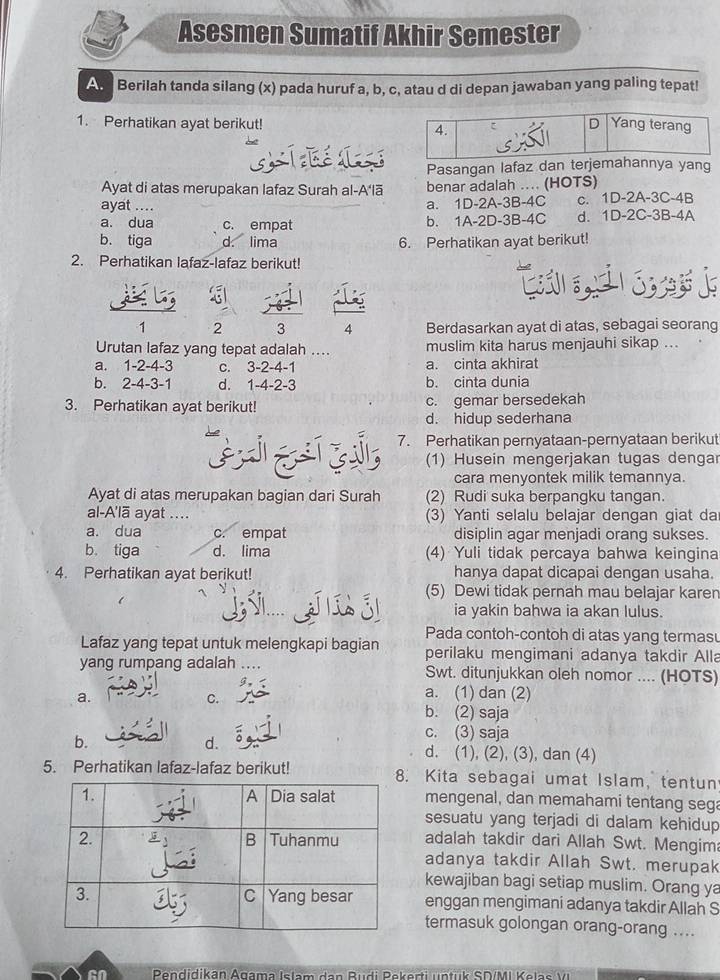 Asesmen Sumatif Akhir Semester
A. Berilah tanda silang (x) pada huruf a, b, c, atau d di depan jawaban yang paling tepat!
1. Perhatikan ayat berikut!
فَجَعَلَهٗ غُثَاۤءً اَحْوٰىۖ
Ayat di atas merupakan lafaz Surah al-A‘lā
ayat ....
a. dua c. empat
b. tiga d. lima
2. Perhatikan lafaz-lafaz berikut!
وَمَا يَخْفٰى اِنَّهٗ الْجَهْرَ يَعْلَمُ
1 2 3 4
Urutan lafaz yang tepat adalah ....
a. 1-2-4-3 c. 3-2-4-1
b. 2-4-3-1 d. 1-4-2-3
3. Perhatikan ayat berikut!
وَالَّذِيْٓ اَخْرَجَ الْمَرْعٰىۖ
Ayat di atas merupakan bagian dari Surah
al-A’lā ayat ....
a. dua c. empat
b. tiga d. lima
4. Perhatikan ayat berikut!
اِنَّ هٰذَا لَفِى .... الْاُوْلٰىۙ
Lafaz yang tepat untuk melengkapi bagian
yang rumpang adalah ....
a. اِبْرٰهِيْمَ c. خَيْرٌ
b. الصُّحُفِ d. الْحَيٰوةَ
5. Perhatikan lafaz-lafaz berikut!
1. الْجَهْرَ A Dia salat
2. فَصَلّٰىۗ B Tuhanmu
3. رَبِّكَ C Yang besar
4. الْكُبْرٰىۚ D Yang terang
Pasangan lafaz dan terjemahannya yang
benar adalah .... (HOTS)
a. 1D-2A-3B-4C c. 1D-2A-3C-4B
b. 1A-2D-3B-4C d. 1D-2C-3B-4A
6. Perhatikan ayat berikut!
بَلْ تُؤْثِرُوْنَ الْحَيٰوةَ الدُّنْيَاۖ
Berdasarkan ayat di atas, sebagai seorang
muslim kita harus menjauhi sikap ...
a. cinta akhirat
b. cinta dunia
c. gemar bersedekah
d. hidup sederhana
7. Perhatikan pernyataan-pernyataan berikut
(1) Husein mengerjakan tugas dengan
cara menyontek milik temannya.
(2) Rudi suka berpangku tangan.
(3) Yanti selalu belajar dengan giat da
disiplin agar menjadi orang sukses.
(4) Yuli tidak percaya bahwa keingina
hanya dapat dicapai dengan usaha.
(5) Dewi tidak pernah mau belajar karen
ia yakin bahwa ia akan lulus.
Pada contoh-contoh di atas yang termasu
perilaku mengimani adanya takdir Alla
Swt. ditunjukkan oleh nomor .... (HOTS)
a. (1) dan (2)
b. (2) saja
c. (3) saja
d. (1), (2), (3), dan (4)
8. Kita sebagai umat Islam, tentun
mengenal, dan memahami tentang sega
sesuatu yang terjadi di dalam kehidup
adalah takdir dari Allah Swt. Mengima
adanya takdir Allah Swt. merupak
kewajiban bagi setiap muslim. Orang ya
enggan mengimani adanya takdir Allah S
termasuk golongan orang-orang ....
60 Pendidikan Agama Islam dan Budi Pekerti untuk SD/MI Kelas VI